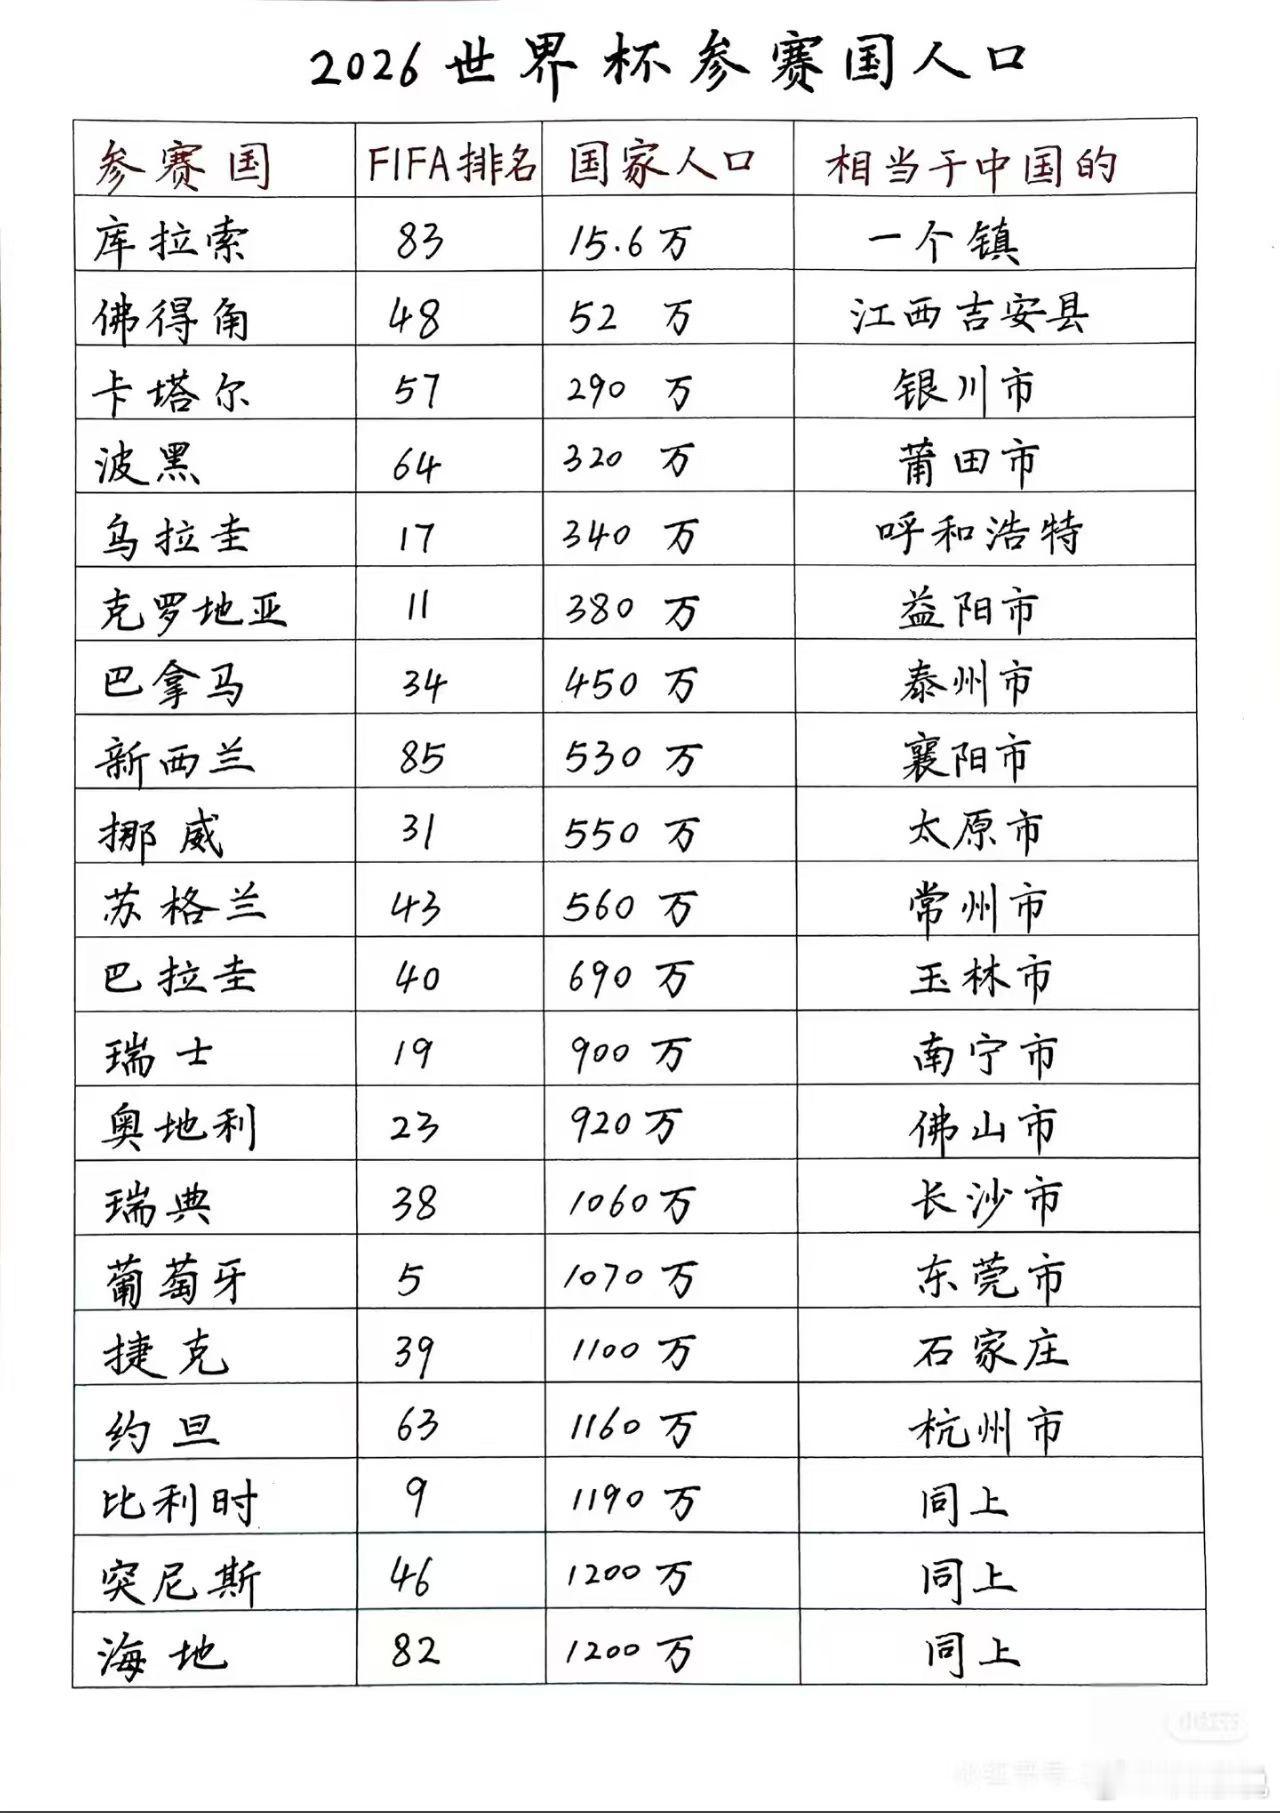 2026世界杯参赛国人口
参赛国 FIFA排名 国家人口 相当于中国的
库拉索 83 15.6万 一个镇
佛得角 48 52万 江西吉安县
卡塔尔 57 290万 银川市
波黑 64 320万 莆田市
乌拉圭 17 340万 呼和浩特
克罗地亚 11 380万 益阳市
巴拿马 34 450万 泰州市
新西兰 85 530万 襄阳市
挪威 31 550万 太原市
苏格兰 43 560万 常州市
巴拉圭 40 690万 玉林市
瑞士 19 900万 南宁市
奥地利 23 920万 佛山市
瑞典 38 1060万 长沙市
葡萄牙 5 1070万 东莞市
捷克 39 1100万 石家庄
约旦 63 1160万 杭州市
比利时 9 1190万 同上
突尼斯 46 1200万 同上
海地 82 1200万 同上